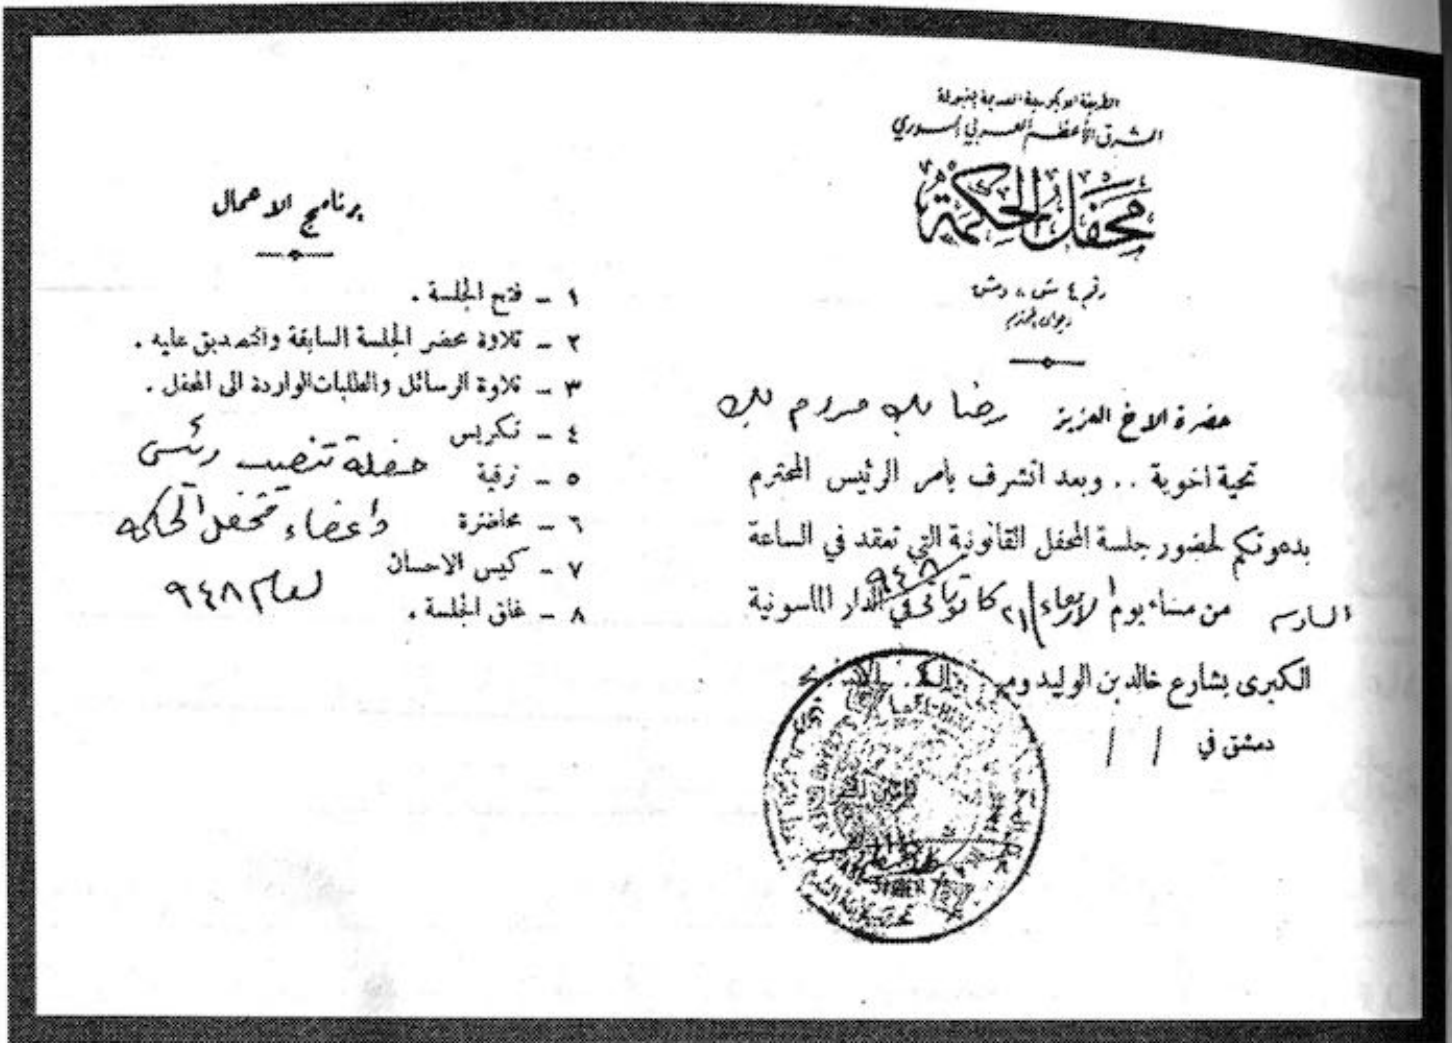 الطريقة الايكوسية القديمة المقبولة
الشرق الأعظم العربي السوري
محفل الحكمة
رقم ٤ ش ٨ دمشق
حضرة الاخ العزيز رضا بك مردم بك
تحية اخوية . . وبعد اتشرف بامر الرئيس المحترم
بدعوتكم لحضور جلسة المحفل القانونية التي تعقد في الساعة
السادسة من مساء يوم الاربعاء ٢١ كا ٢ ٩٤٨ في الدار الماسونية
الكبرى بشارع خالد بن الوليد
دمشق في / /
برنامج الاعمال
١ - فتح الجلسة .
٢ - تلاوة محضر الجلسة السابقة والتصديق عليه .
٣ - تلاوة الرسائل والطلبات الواردة الى المحفل .
٤ - تكريس
٥ - ترقية
٦ - محاضرة
٧ - كيس الاحسان
٨ - غلق الجلسة .
حفلة تنصيب رئيس
واعضاء محفل الحكمة
لعام ٩٤٨